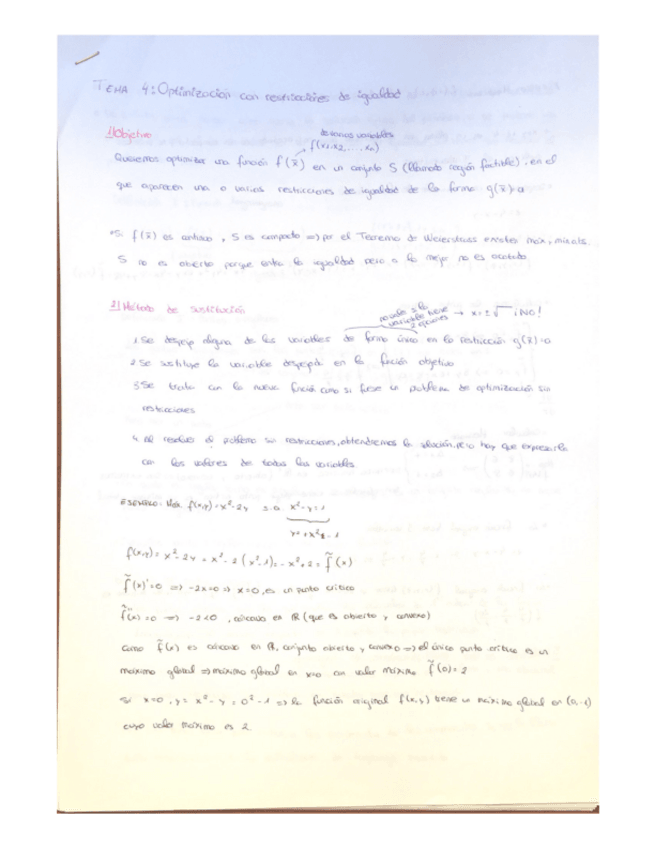 TEMA 4: Optimización con restricciones de igualdad
1) Objetivo
de varias variables
f(x1, x2, ..., xn)
Queremos optimizar una función f(x̄) en un conjunto S (llamado región factible), en el
que aparecen una o varias restricciones de igualdad de la forma g(x̄)=a
*Si f(x̄) es continua, S es compacto => por el Teorema de Weierstrass existen max, min abs.
S no es abierto porque entra la igualdad pero a lo mejor no es acotado.
2) Método de sustitución
no vale si la
variable tiene
2 opciones → x=±√ ¡NO!
1. Se despeja alguna de las variables de forma única en la restricción g(x̄)=0
2 Se sustituye la variable despejada en la función objetivo
3 Se trata con la nueva función como si fuese un problema de optimización sin
restricciones
4. Al resolver el problema sin restricciones, obtendremos la solución, pero hay que expresarla
con los valores de todas las variables
EJEMPLO: Max f(x,y)=x²-2y s.a x²-y=1
y=+x²-1
f(x,y)= x²-2y = x²-2(x²-1)=-x²+2= f̃(x)
f̃(x)'=0 => -2x=0 => x=0, es un punto crítico
f̃''(x)=0 => -2<0, cóncava en ℝ (que es abierto y convexo)
Como f̃(x) es cóncava en ℝ, conjunto abierto y convexo => el único punto crítico es un
máximo global => máximo global en x=0 con valor máximo f̃(0)=2
Si x=0, y= x²-y = 0²-1 => la función original f(x,y) tiene un máximo global en (0,-1)
cuyo valor máximo es 2